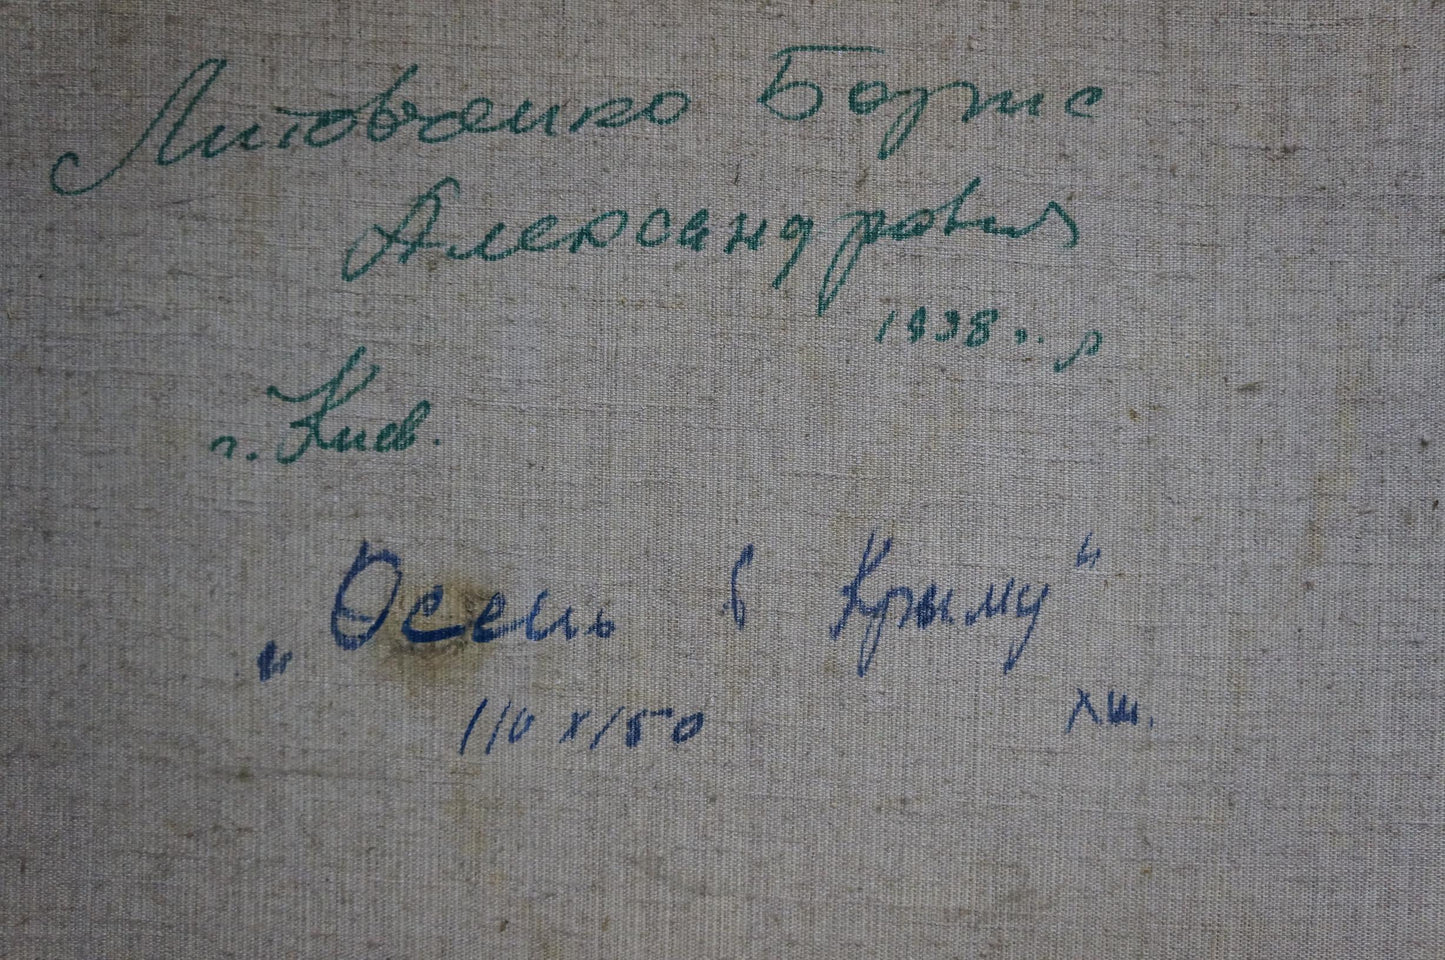 Литовченко Борис
Александрович
1938 г. р
г. Киев.
„Осень в Крыму“
110 х 150 хш.